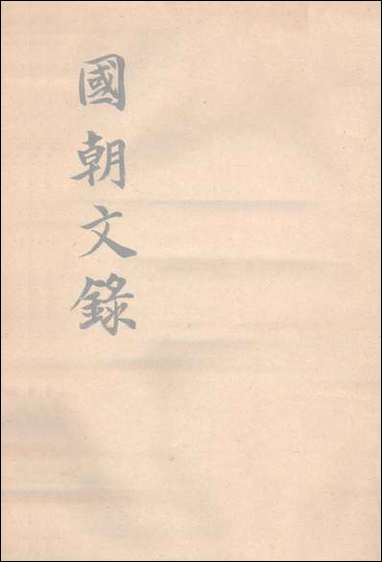 國朝文錄